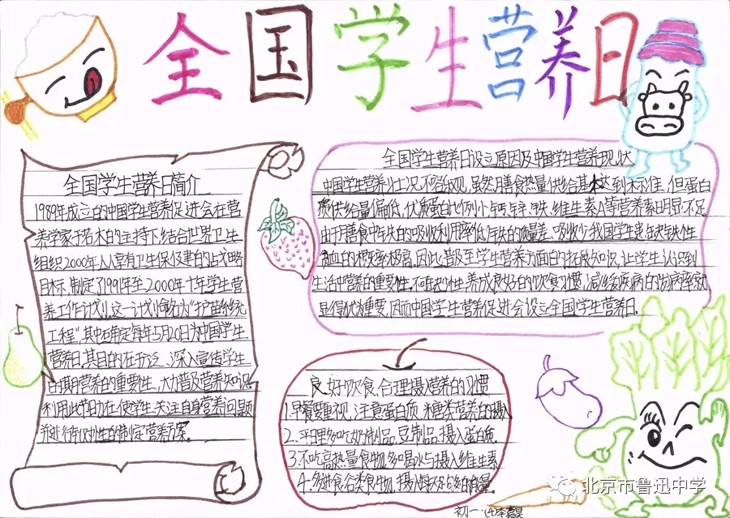 全国学生营养日
全国学生营养日简介
1989年成立的中国学生营养促进会在营
养学家于若木的主持下,结合世界卫生
组织2000年人人享有卫生保健的战略
目标,制定了1991年至2000年十年学生营
养工作计划,这一计划
工程",其中确定每年5月20日为中国学生
营养日,其目的在于广泛、深入宣传学生
时期营养的重要性,大力普及营养知识
利用此节日在使学生关注自身营养问题
并进行有针对性的制定营养方案。
全国学生营养日设立原因及中国学生营养现状
中国学生营养状况不容乐观,虽然膳食热量供给基本达到标准,但蛋白
质供给量偏低,优质蛋白比例小,钙、锌、铁、维生素A等营养素明显不足
由于膳食中铁的吸收利用率低
贫血的
生活中营养的重要性
显得尤为重要,因而中国学生营养促进会设立全国学生营养日.
良好饮食,合理摄入营养的习惯
1.早餐要重视,注意蛋白质、糖类营养的摄入
2.平日里多吃奶制品,豆制品,摄入蛋白质.
3.不吃高热量食物,多喝水与摄入维生素
4.多进食谷类食物,摄入
初一
北京市鲁迅中学